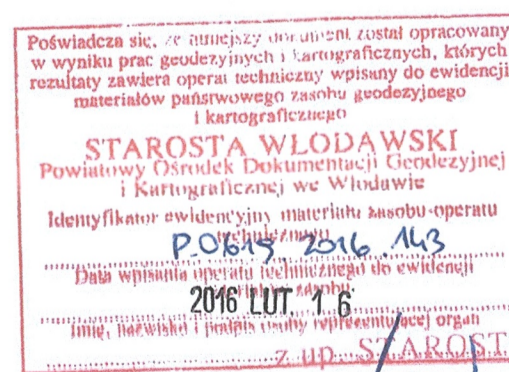 Poświadcza się, że niniejszy dokument został opracowany
w wyniku prac geodezyjnych i kartograficznych, których
rezultaty zawiera operat techniczny wpisany do ewidencji
materiałów państwowego zasobu geodezyjnego
i kartograficznego
STAROSTA WŁODAWSKI
Powiatowy Ośrodek Dokumentacji Geodezyjnej
i Kartograficznej we Włodawie
Identyfikator ewidencyjny materiału zasobu-operatu
technicznego
P.0619.2016.143
Data wpisania operatu technicznego do ewidencji
materiałów zasobu
2016 LUT. 16
Imię, nazwisko i podpis osoby reprezentującej organ
z up. STAROST